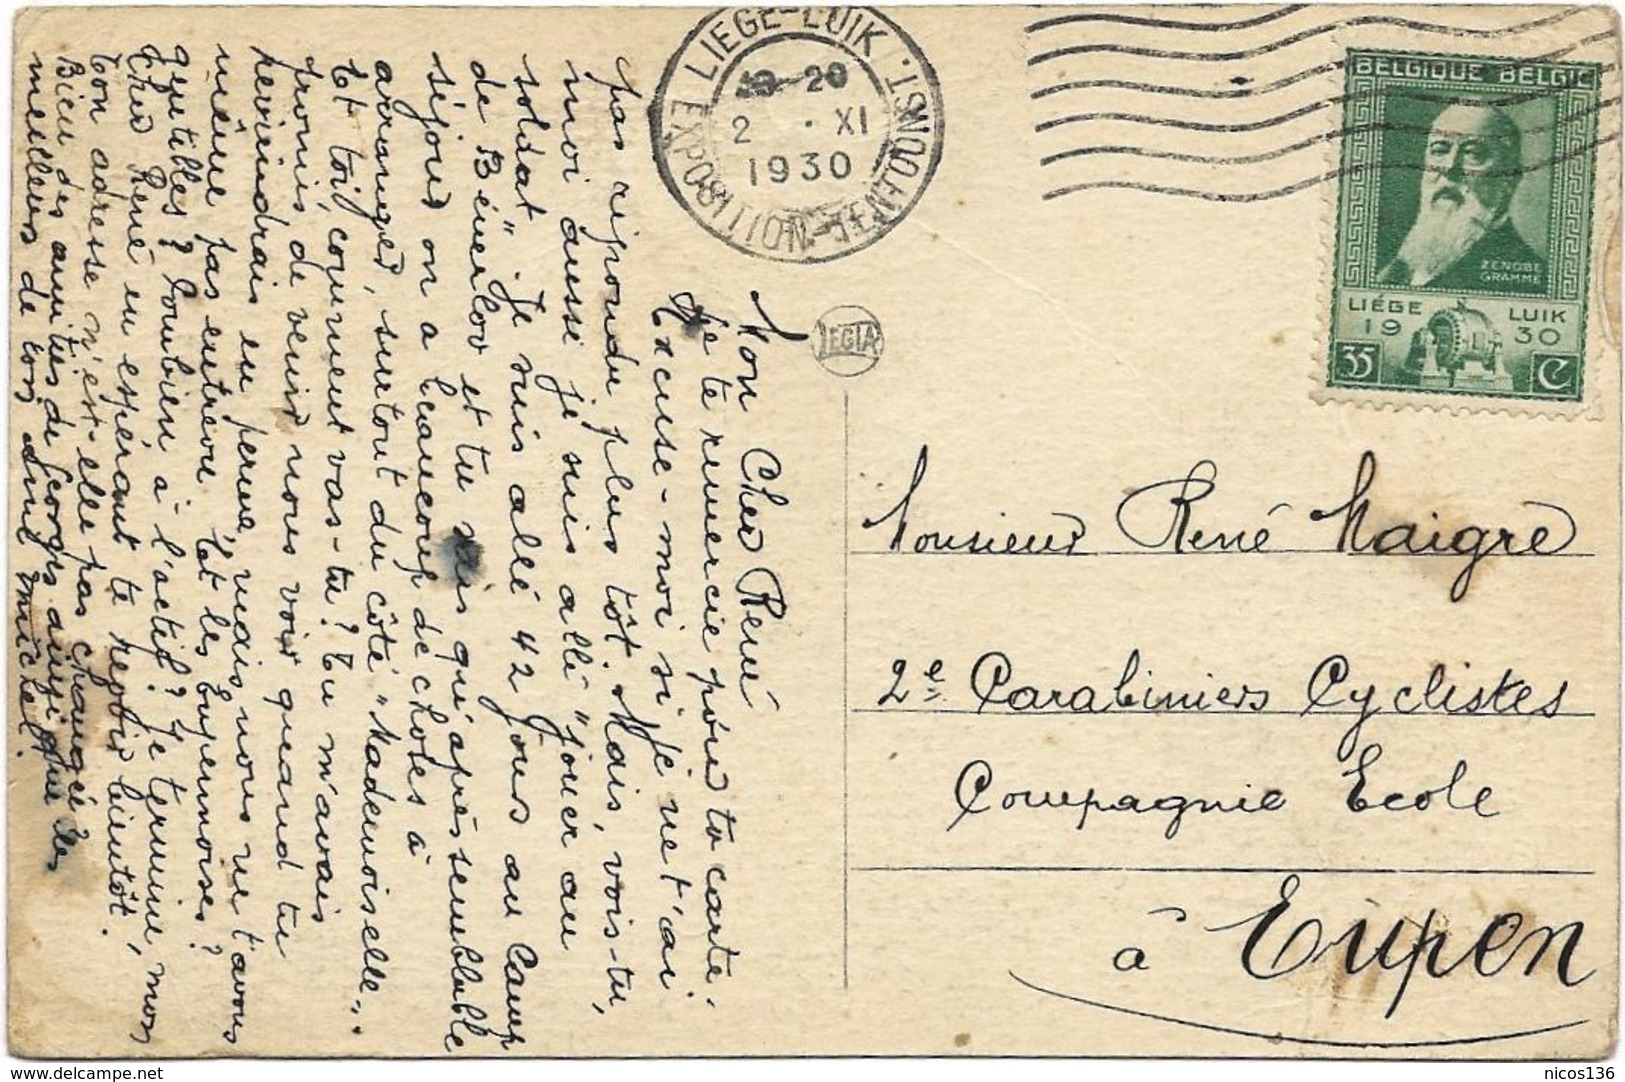 LIEGE-LUIK
19-20
2 . XI
1930
EXPOSITION-TENTOONST.
BELGIQUE BELGIE
ZENOBE
GRAMME
LIÉGE LUIK
19 30
35 C
LEGIA
Mon Cher René
Je te remercie pour ta carte.
Excuse-moi si je ne t'ai
pas répondu plus tôt. Mais, vois-tu,
moi aussi je suis allé "jouer au
soldat". Je suis allé 42 jours au Camp
de Béverloo et tu sais qu'après semblable
séjour on a beaucoup de choses à
arranger, surtout du côté "Mademoiselle...
Et toi, comment vas-tu? Tu m'avais
promis de venir nous voir quand tu
reviendrais en perme, mais nous ne t'avons
même pas entrevu. Et les Eupennoises?
gentilles? Combien à l'actif? Je termine, mon
cher René en espérant te revoir bientôt.
Ton adresse n'est-elle pas changée?
Bien des amitiés de Georges ainsi que les
meilleurs de ton ami Michel.
Monsieur René Maigre
2e Carabiniers Cyclistes
Compagnie Ecole
à Eupen
delcampe.net
nicos136